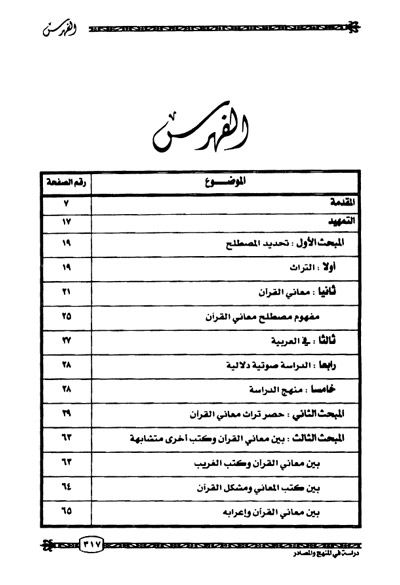 الفهرس
الفهرس
الموضوع رقم الصفحة
المقدمة ٧
التمهيد ١٧
المبحث الأول : تحديد المصطلح ١٩
أولا : التراث ١٩
ثانيا : معاني القرآن ٢١
مفهوم مصطلح معاني القرآن ٢٥
ثالثا : في العربية ٢٧
رابعا : الدراسة صوتية دلالية ٢٨
خامسا : منهج الدراسة ٢٨
المبحث الثاني : حصر تراث معاني القرآن ٢٩
المبحث الثالث : بين معاني القرآن وكتب أخرى متشابهة ٦٣
بين معاني القرآن وكتب الغريب ٦٣
بين كتب المعاني ومشكل القرآن ٦٤
بين معاني القرآن وإعرابه ٦٥
٣١٧
دراسة في المنهج والمصادر